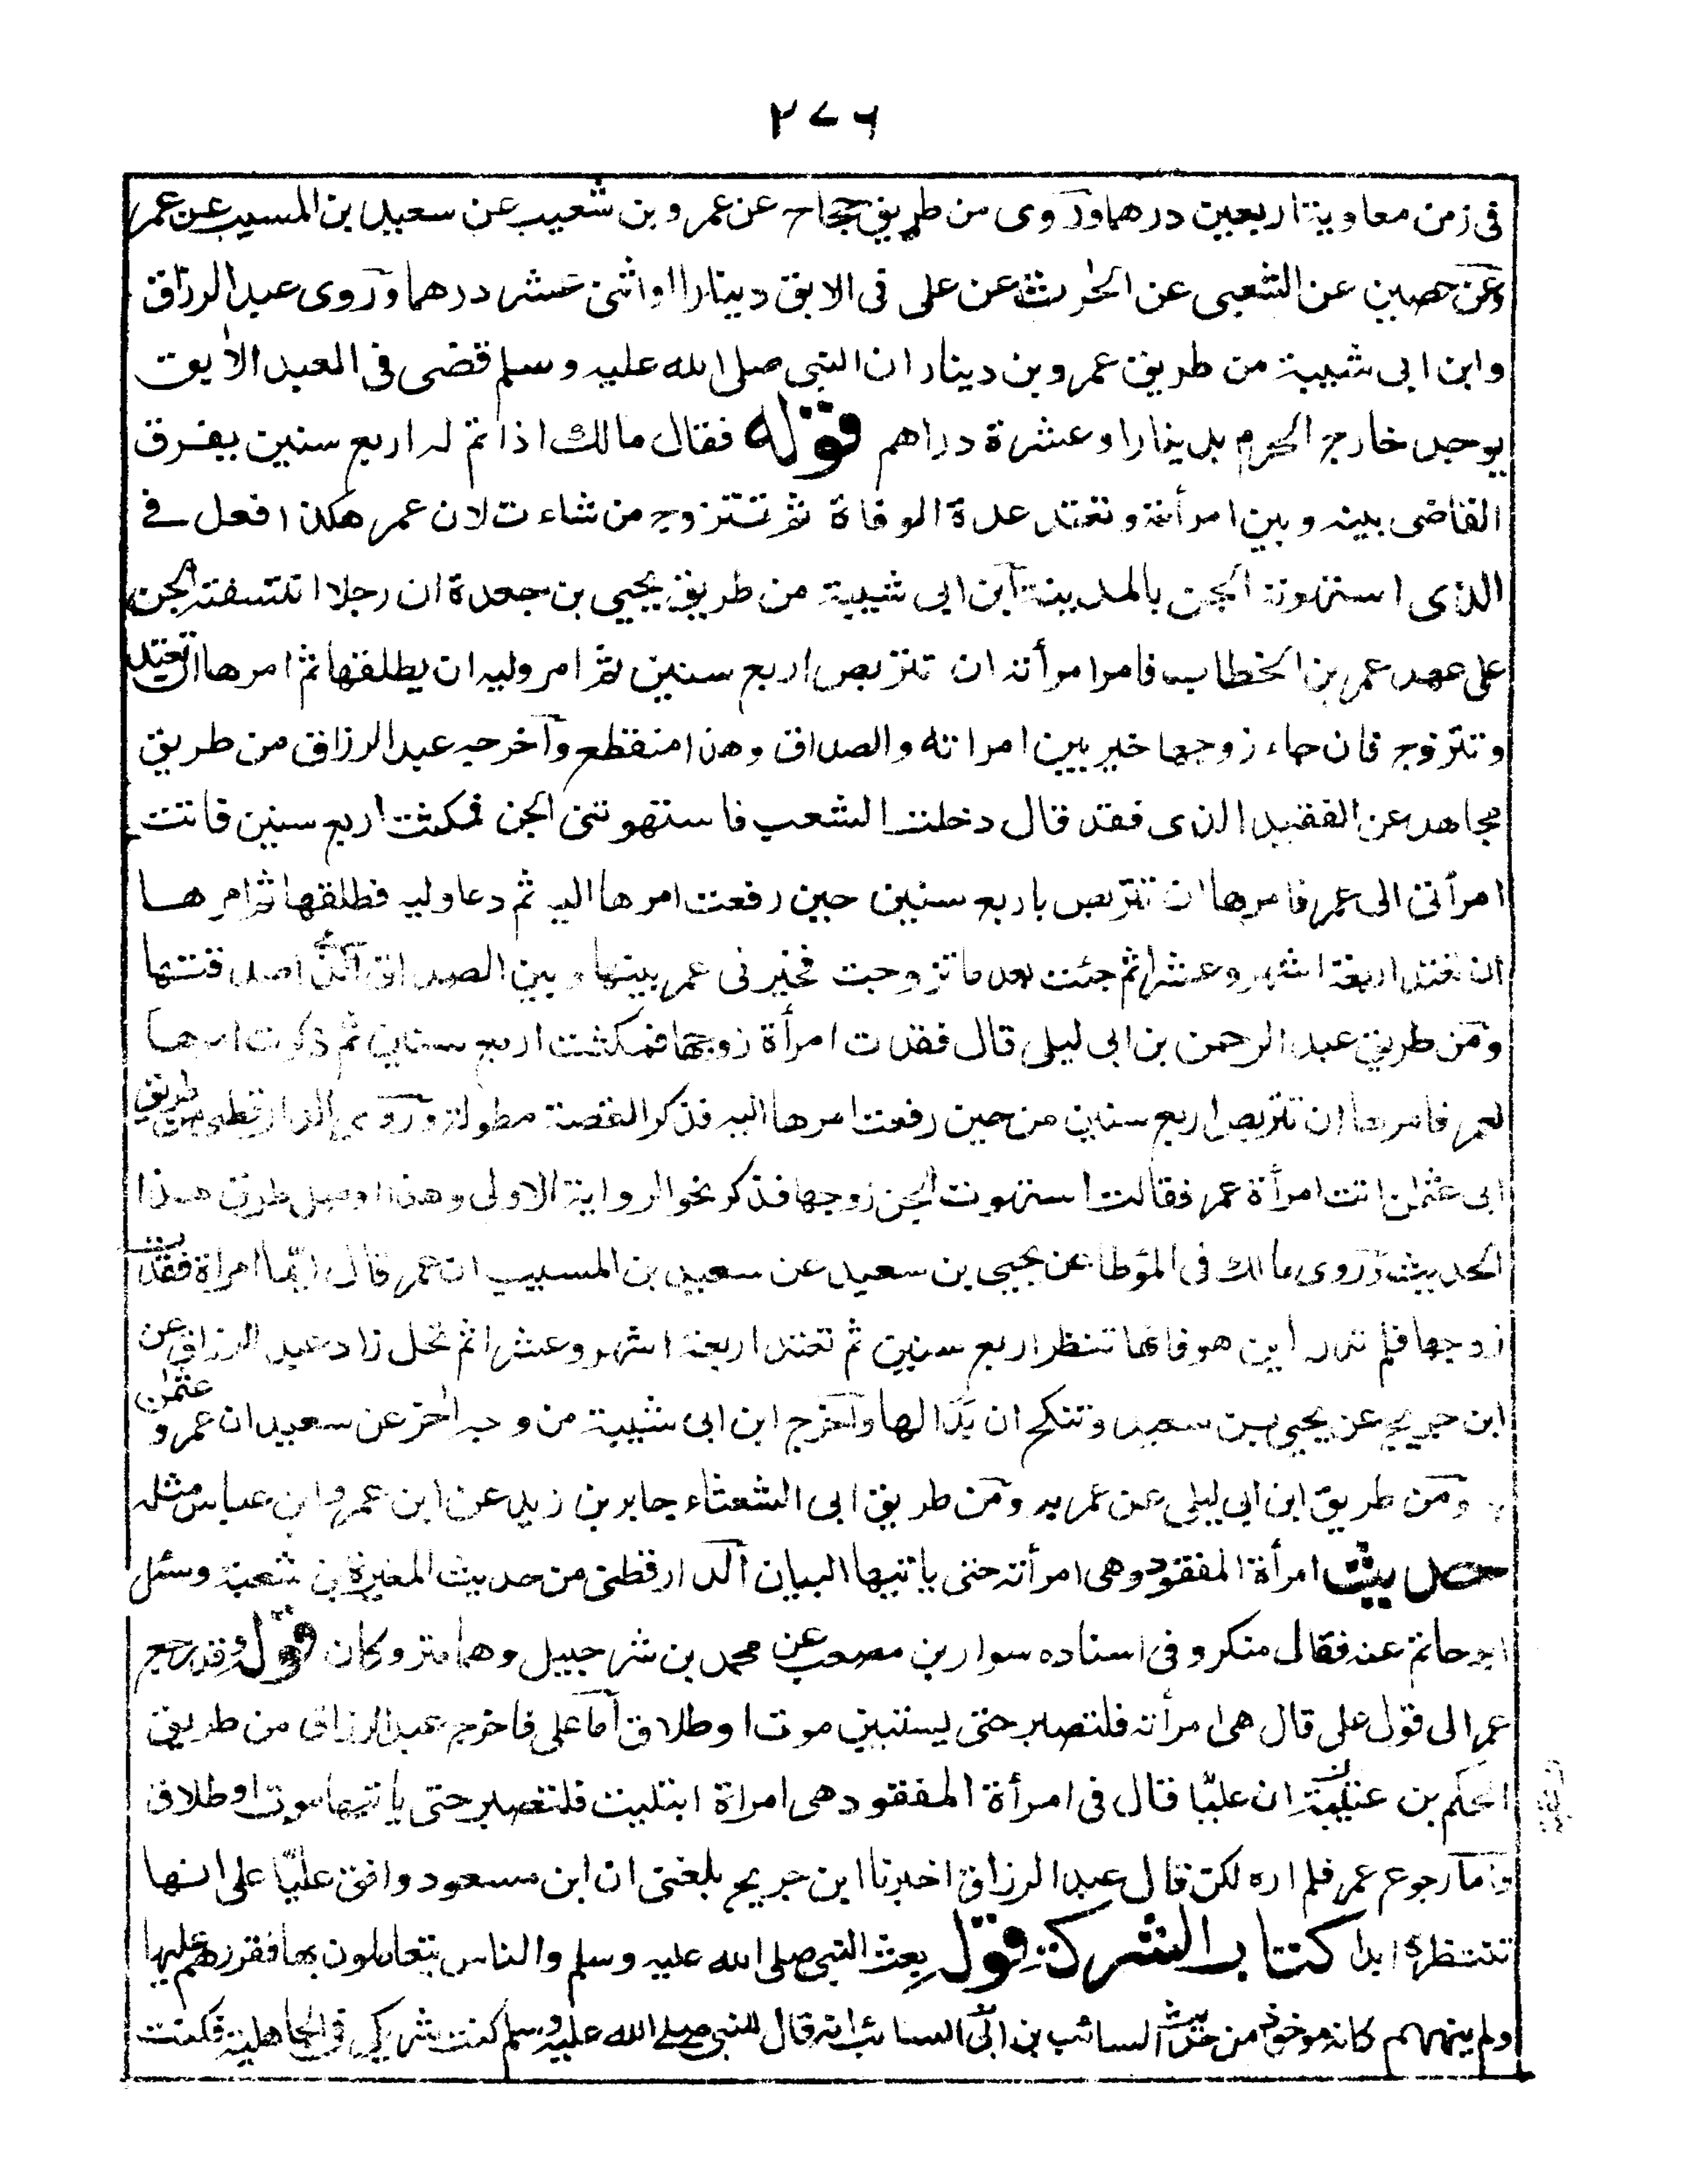 ٢٧٦
فى زمن معاوية اربعين درهما وروى من طريق حجاج عن عمرو بن شعيب عن سعيد بن المسيب عن عمر
وعن حصين عن الشعبى عن الحرث عن على فى الابق دينارا او اثنى عشر درهما وروى عبد الرزاق
وابن ابى شيبة من طريق عمرو بن دينار ان النبى صلى الله عليه وسلم قضى فى العبد الابق
يوجد خارج الحرم بدينار او عشرة دراهم قوله فقال مالك اذا تم له اربع سنين يفرق
القاضى بينه وبين امرأته وتعتد عدة الوفاة ثم تتزوج من شاءت لان عمر هكذا فعل فے
الذى استهوته الجن بالمدينة ابن ابى شيبة من طريق يحيى بن جعدة ان رجلا انتسفته الجن
على عهد عمر بن الخطاب فامر امرأته ان تتربص اربع سنين ثم امر وليه ان يطلقها ثم امرها ان تعتد
وتتزوج فان جاء زوجها خير بين امراته والصداق وهذا منقطع وآخرجه عبد الرزاق من طريق
مجاهد عن الفقيد الذى فقد قال دخلت الشعب فاستهوتنى الجن فمكثت اربع سنين فاتت
امرأتى الى عمر فامرها ان تتربص باربع سنين حين رفعت امرها اليه ثم دعا وليه فطلقها ثم امرها
ان تعتد اربعة اشهر وعشرا ثم جئت بعد ما تزوجت فخيرنى عمر بينها وبين الصداق الذى اصدقتها
ومن طريق عبد الرحمن بن ابى ليلى قال فقدت امرأة زوجها فمكثت اربع سنين ثم ذكرت امرها
لعمر فامرها ان تتربص اربع سنين من حين رفعت امرها اليه فذكر القصة مطولة وروى الدارقطنى من طريق
ابى عثمان اتت امرأة عمر فقالت استهوت الجن زوجها فذكر نحو الرواية الاولى وهذا اوصل طرق هذا
الحديث وروى مالك فى المؤطا عن يحيى بن سعيد عن سعيد بن المسيب ان عمر قال ايّما امراة فقدت
زوجها فلم تدر اين هو فانها تنتظر اربع سنين ثم تعتد اربعة اشهر وعشرا ثم تحل زاد عبد الرزاق عن
ابن جريج عن يحيى بن سعيد وتنكح ان بدا لها وآخرج ابن ابى شيبة من وجه اخر عن سعيد ان عمر وعثمن
به ومن طريق ابن ابى ليلى عن عمر به ومن طريق ابى الشعثاء جابر بن زيد عن ابن عمر وابن عباس مثله
حديث امرأة المفقود وهى امرأته حتى ياتيها البيان الدارقطنى من حديث المغيرة بن شعبة وسئل
ابو حاتم عنه فقال منكر وفى اسناده سوار بن مصعب عن محمد بن شرحبيل وهما متروكان قوله وقد رجع
عمر الى قول على قال هى امرأته فلتصبر حتى يستبين موت او طلاق آما على فاخرج عبد الرزاق من طريق
الحكم بن عتيبة ان عليّا قال فى امرأة المفقود هى امراة ابتليت فلتصبر حتى ياتيها موت او طلاق
وآما رجوع عمر فلم اره لكن قال عبد الرزاق اخبرنا ابن جريج بلغنى ان ابن مسعود وافق عليّا على انها
تنتظره ابدا كتاب الشركة قوله بعث النبى صلى الله عليه وسلم والناس يتعاملون بها فقررهم عليها
ولم ينههم كانه موخوذ من حديث السائب بن ابى السائب انه قال للنبى صلے الله عليه وسلم كنت شريكى فى الجاهلية فكنت